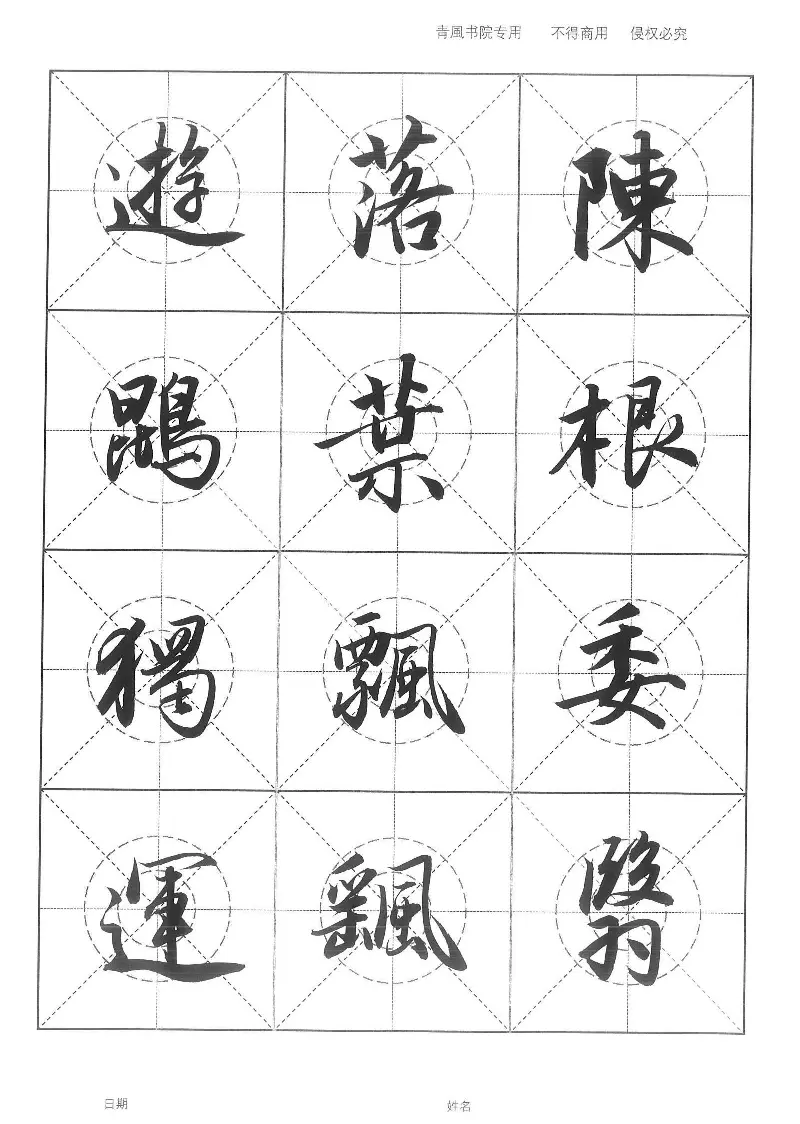 青風书院专用 不得商用 侵权必究
陳根委翳
落葉飄颻
遊鵾獨運
日期 姓名